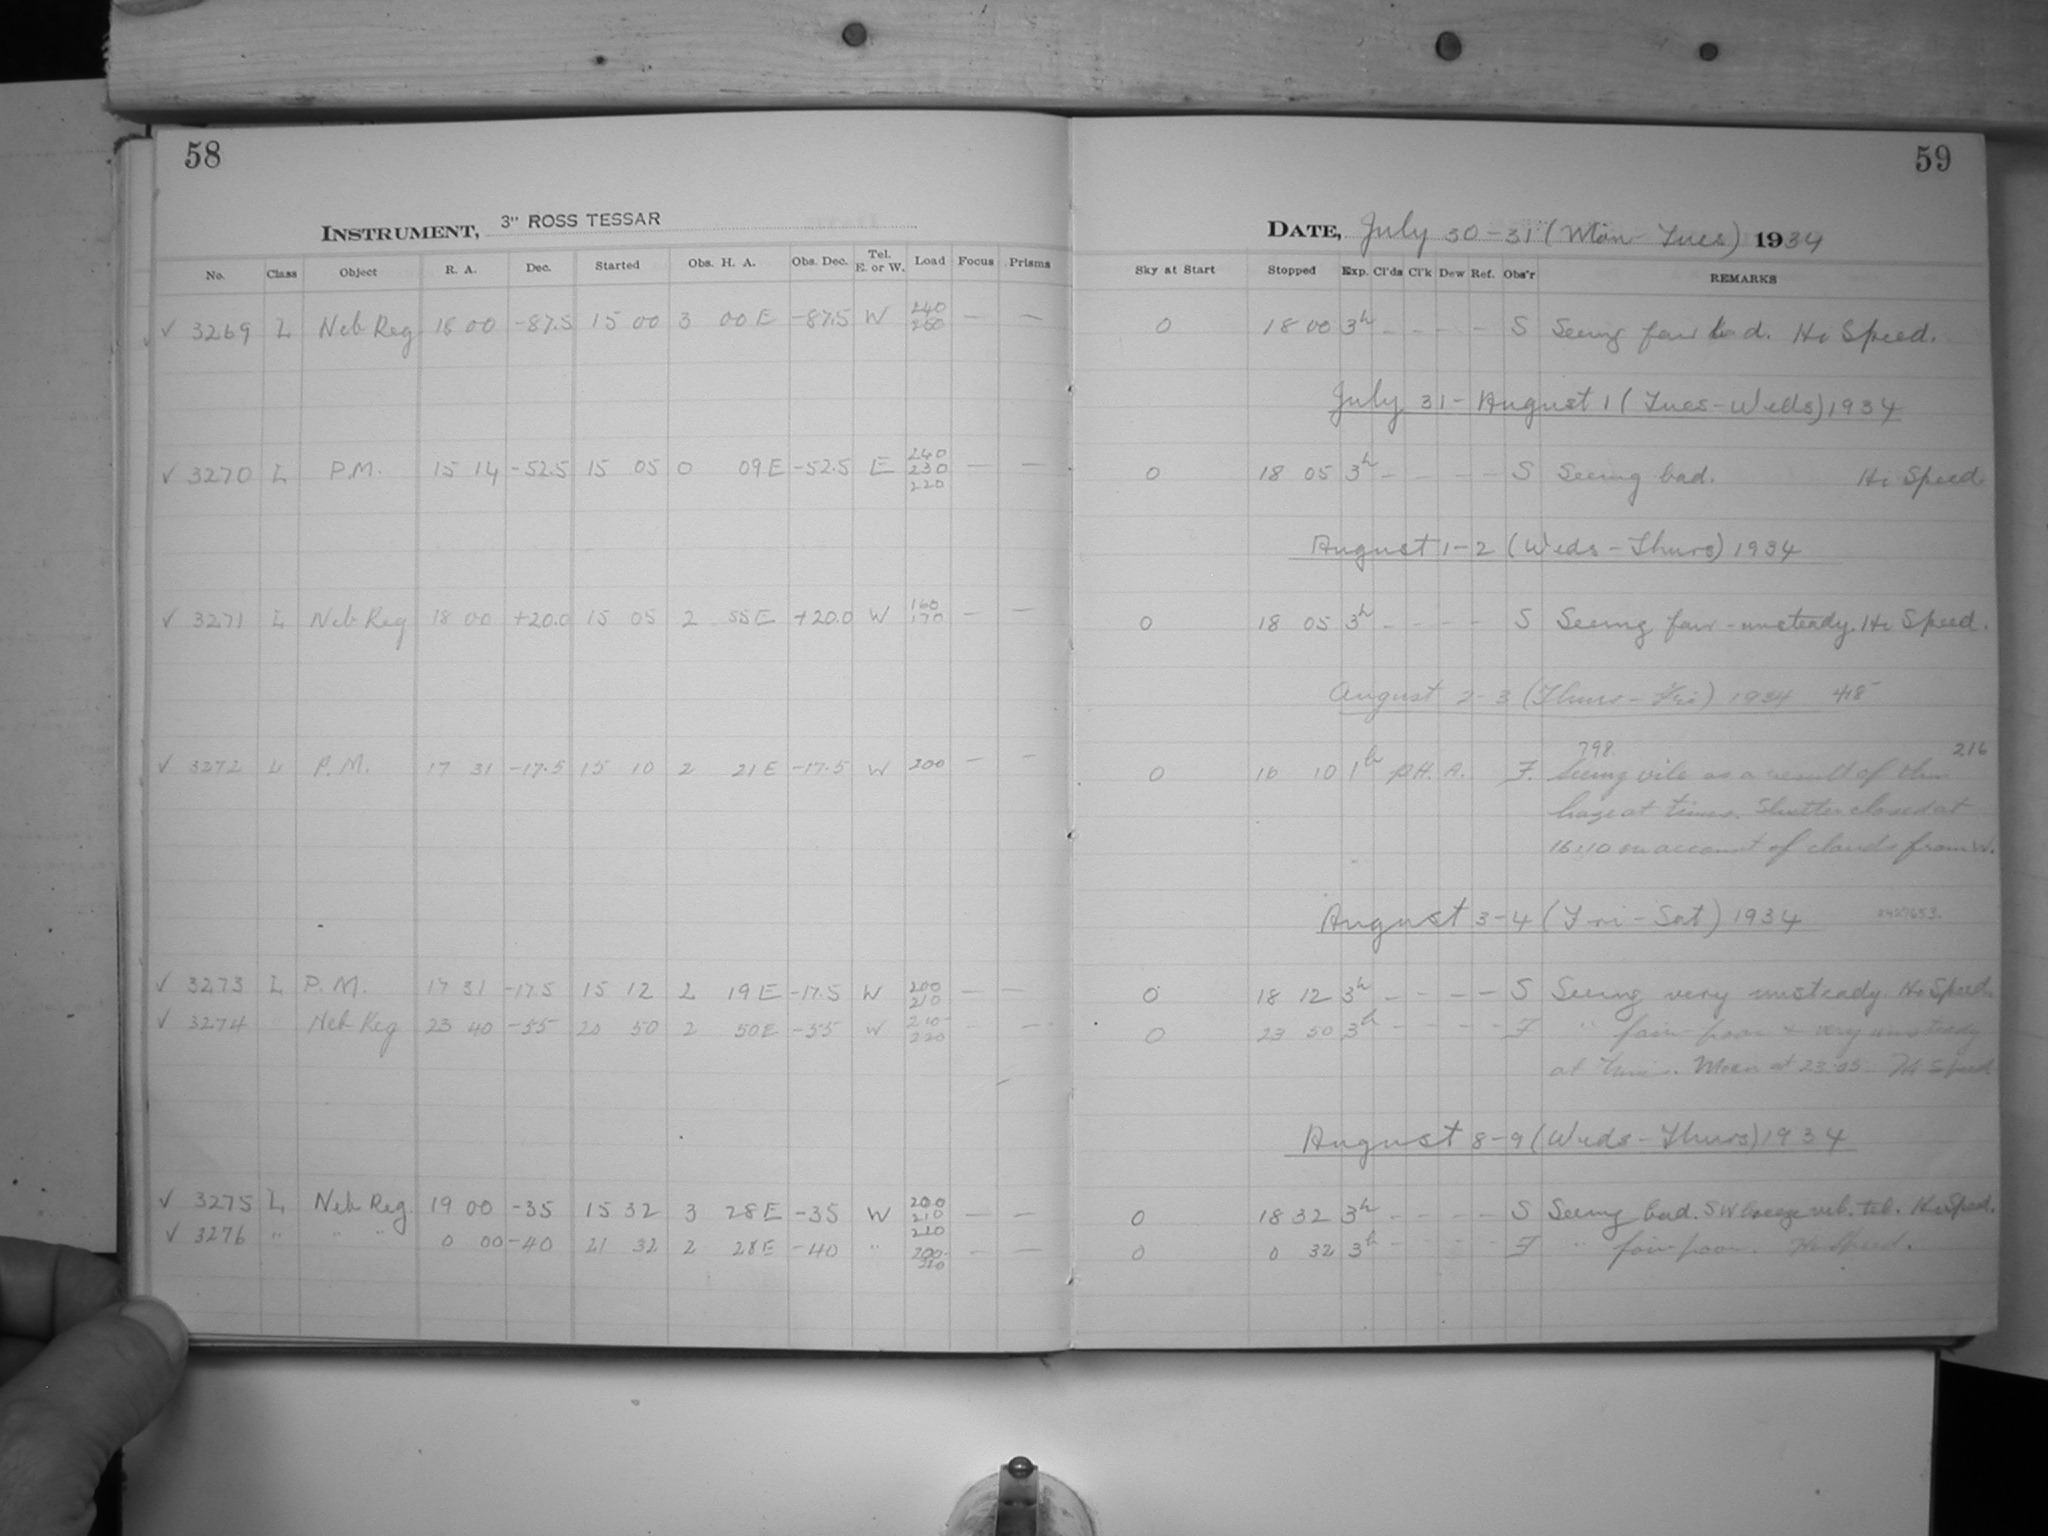 58
INSTRUMENT, 3" ROSS TESSAR
No. Class Object R. A. Dec. Started Obs. H. A. Obs. Dec. Tel. E. or W. Load Focus Prisms
✓ 3269 L Neb Reg 18 00 -87.5 15 00 3 00 E -87.5 W 240 260 — —
✓ 3270 L P.M. 15 14 -52.5 15 05 0 09 E -52.5 E 240 230 220 — —
✓ 3271 L Neb Reg 18 00 +20.0 15 05 2 55 E +20.0 W 160 170 — —
✓ 3272 L P.M. 17 31 -17.5 15 10 2 21 E -17.5 W 200 — —
✓ 3273 L P.M. 17 31 -17.5 15 12 2 19 E -17.5 W 200 210 — —
✓ 3274 " Neb Reg 23 40 -55 20 50 2 50 E -55 W 210 220 — —
✓ 3275 L Neb Reg 19 00 -35 15 32 3 28 E -35 W 200 210 — —
✓ 3276 " " " 0 00 -40 21 32 2 28 E -40 " 210 200 210 — —
59
DATE, July 30-31 (Mon-Tues) 1934
Sky at Start Stopped Exp. Cl'ds Cl'k Dew Ref. Obs'r REMARKS
0 18 00 3h - - - - S Seeing fair bad. Hi Speed.
July 31 - August 1 (Tues-Weds) 1934
0 18 05 3h - - - - S Seeing bad. Hi Speed
August 1-2 (Weds-Thurs) 1934
0 18 05 3h - - - - S Seeing fair - unsteady. Hi Speed.
August 2-3 (Thurs-Fri) 1934 418
798 216
0 16 10 1h P.H. A. F. Seeing vile as a result of thin
haze at times. Shutter closed at
16:10 on account of clouds from W.
August 3-4 (Fri-Sat) 1934
0 18 12 3h - - - - S Seeing very unsteady. Hi Speed.
0 23 50 3h - - - - F " fair-poor & very unsteady
at times. Moon at 23:05. Hi Speed
August 8-9 (Weds-Thurs) 1934
0 18 32 3h - - - - S Seeing bad. SW breeze vib. tel. Hi Speed.
0 0 32 3h - - - - F " fair-poor. Hi Speed.